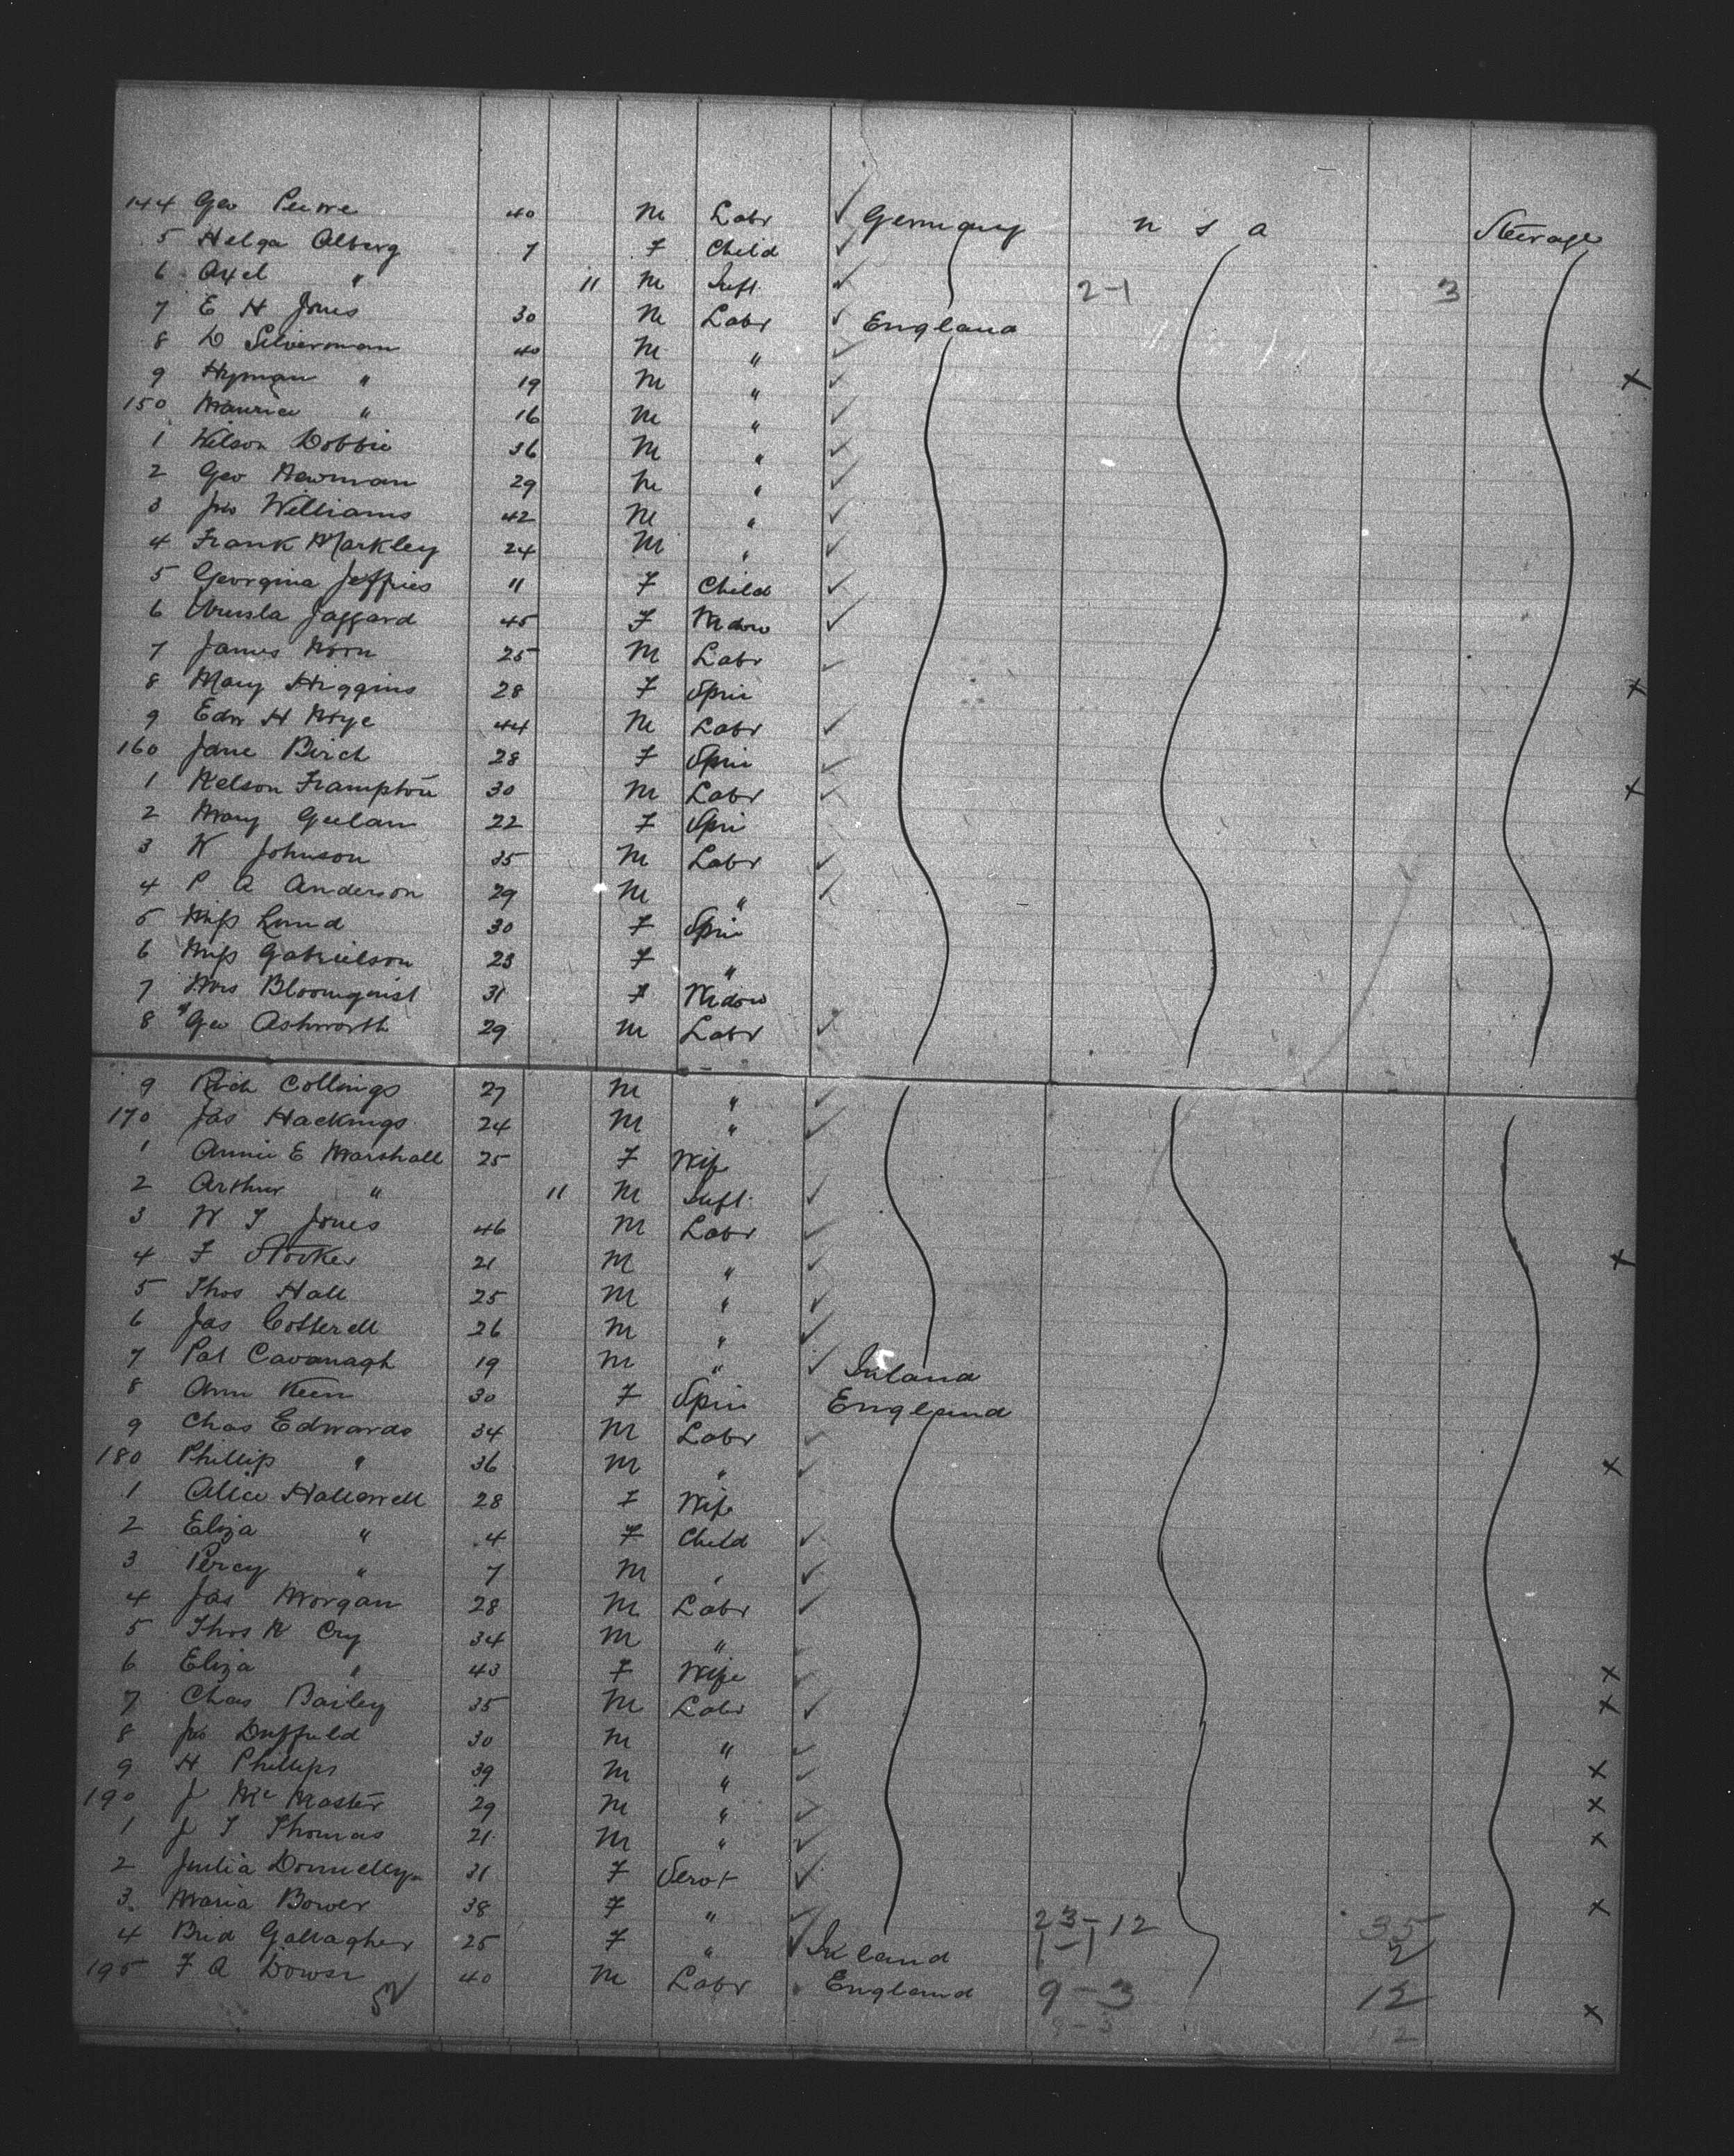 144 Geo 40 M Labr ✓ Germany U S A Steerage
5 Helga Alberg 7 F Child ✓
6 Axel " 11 M Inft ✓ 2-1 3
7 E H Jones 30 M Labr ✓ England
8 D Silverman 40 M " ✓
9 Hyman " 19 M " ✓ x
150 Maurice " 16 M " ✓
1 Wilson Dobbie 36 M " ✓
2 Geo Newman 29 M " ✓
3 Jno Williams 42 M " ✓
4 Frank Markley 24 M " ✓
5 Georgina Jeffries 11 F Child ✓
6 Ursula Jaggard 45 F Widow ✓
7 James Norn 25 M Labr ✓
8 Mary Higgins 28 F Spin x
9 Edw H Nye 44 M Labr ✓
160 Jane Birch 28 F Spin ✓
1 Nelson Frampton 30 M Labr ✓ x
2 Mary Geelan 22 F Spin
3 W Johnson 35 M Labr ✓
4 P A Anderson 29 M " ✓
5 Miss Lund 30 F Spin
6 Miss Gabrielson 23 F "
7 Mrs Bloomquist 31 F Widow
8 Geo Ashworth 29 M Labr ✓
9 Rich Collings 27 M " ✓
170 Jas Hackings 24 M " ✓
1 Annie E Marshall 25 F Wife
2 Arthur " 11 M Inft ✓
3 W T Jones 46 M Labr ✓
4 F Stocker 21 M " ✓ x
5 Thos Hall 25 M " ✓
6 Jas Cotterell 26 M " ✓
7 Pat Cavanagh 19 M " ✓ Ireland
8 Ann Keen 30 F Spin England
9 Chas Edwards 34 M Labr ✓
180 Phillip " 36 M " ✓ x
1 Alice Hallowell 28 F Wife
2 Eliza " 4 F Child ✓
3 Percy " 7 M " ✓
4 Jas Morgan 28 M Labr ✓
5 Thos W Cry 34 M "
6 Eliza " 43 F Wife ✓ x
7 Chas Bailey 35 M Labr ✓ x
8 Jno Duffield 30 M " ✓
9 H Phillips 39 M " ✓ x
190 J McMaster 29 M " ✓ x
1 J T Thomas 21 M " ✓ x
2 Julia Donnelly 31 F Servt ✓
3 Maria Bower 38 F " ✓ 23-12 35 x
4 Brid Gallagher 25 F " ✓ Ireland 1-1 2
195 F A Dowse 40 M Labr England 9-3 12 x
52 9-3 12